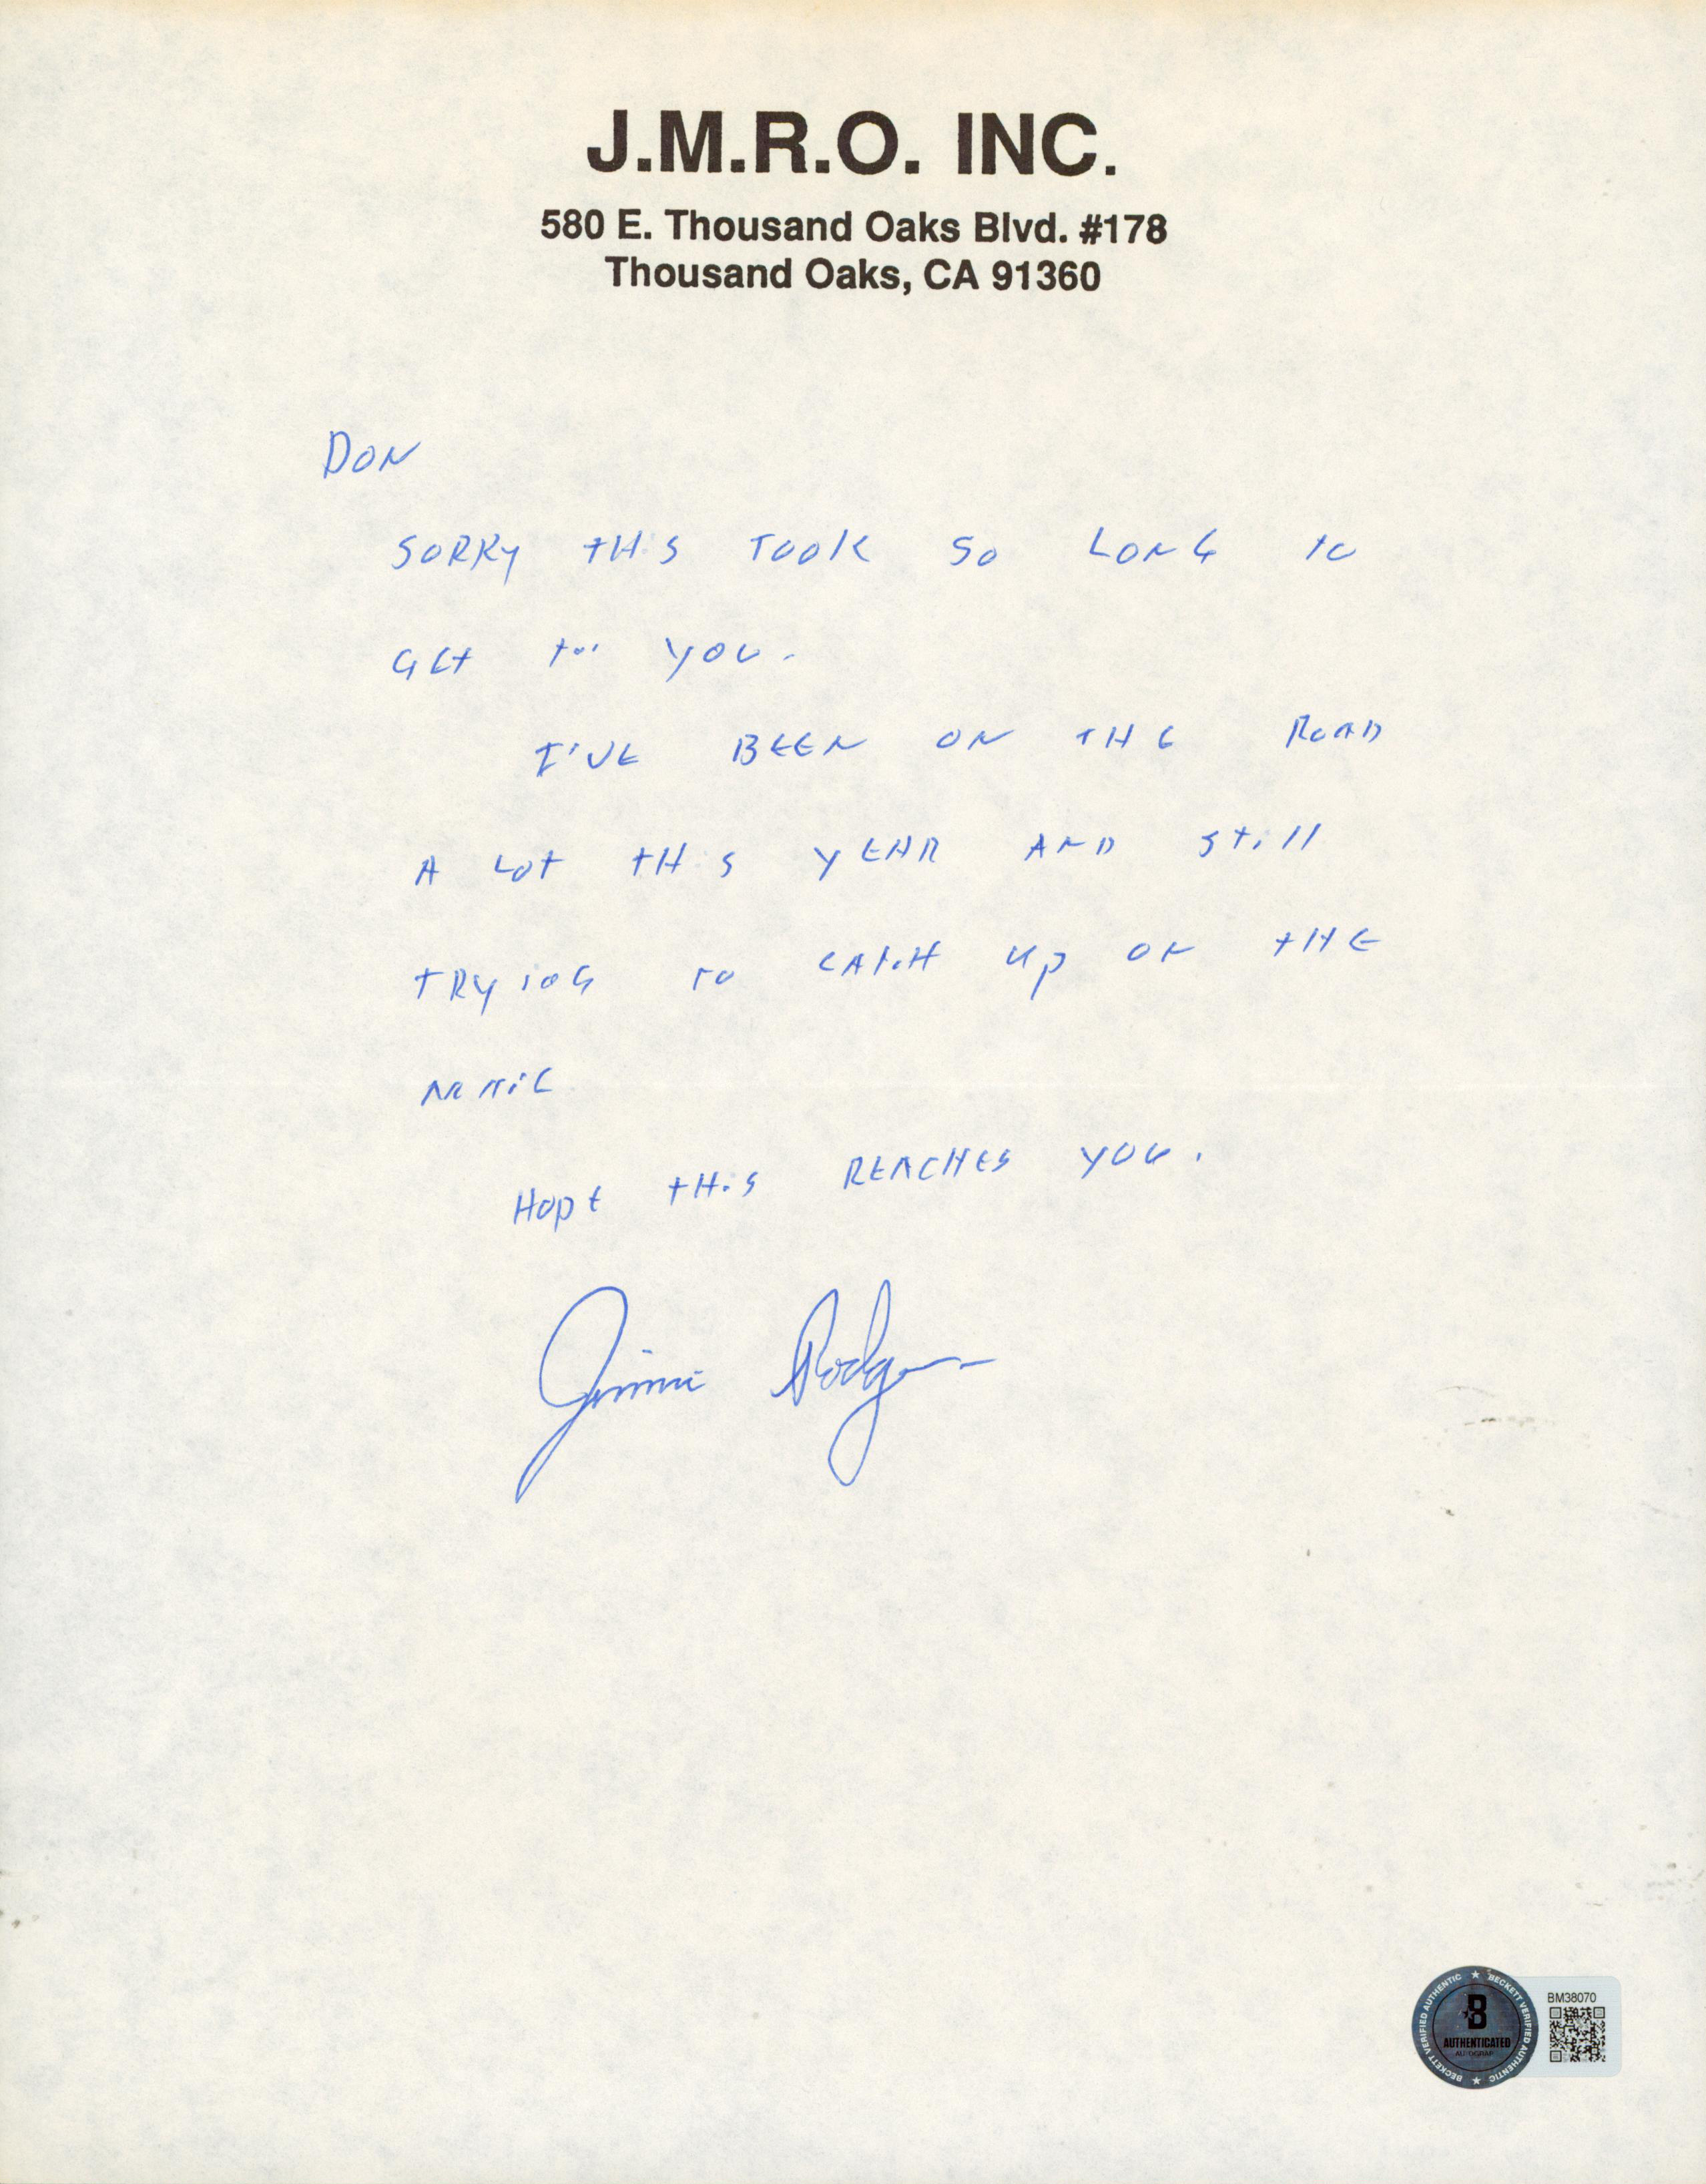 J.M.R.O. INC.
580 E. Thousand Oaks Blvd. #178
Thousand Oaks, CA 91360
DON
SORRY tHiS TOOK SO LONG to
GEt to YOU.
I'VE BEEN ON tHE ROAD
A Lot tHiS YEAR AND still
tRYING TO CAtCH Up ON tHE
MAiL
HopE tHiS REACHES YOU.
Jimmie Rodgers
BECKETT VERIFIED AUTHENTIC ★ BECKETT VERIFIED AUTHENTIC ★
B
AUTHENTICATED
AUTOGRAPH
BM38070